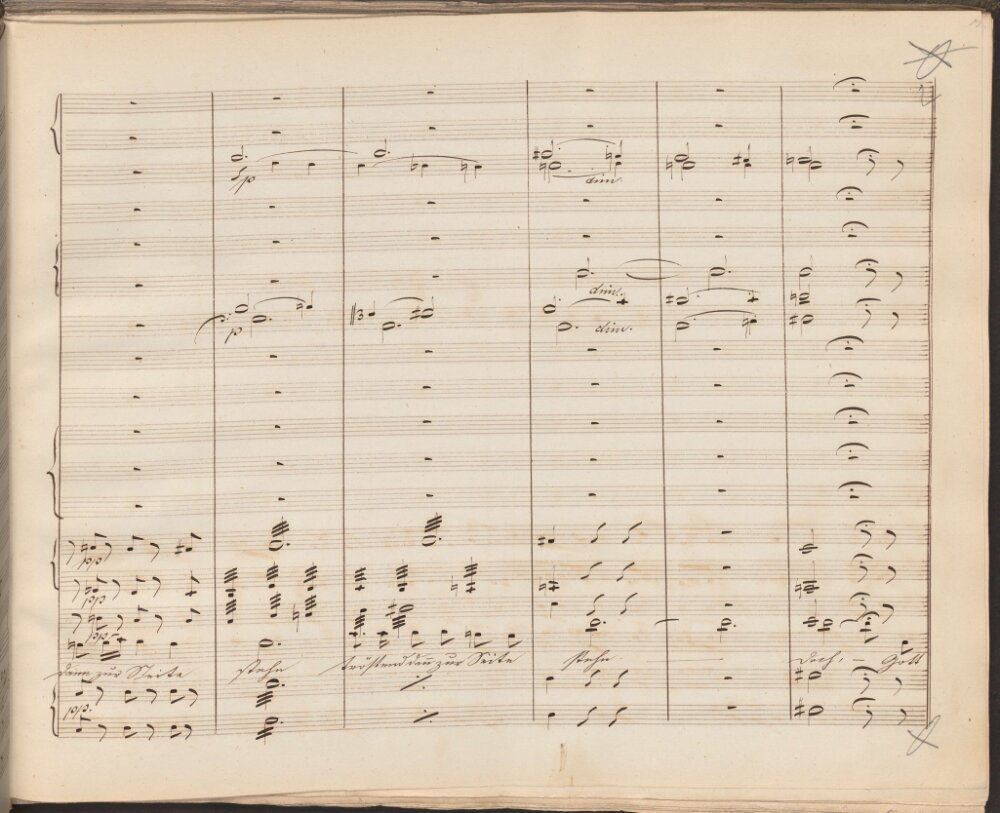 p
dim.
dim.
p
dim.
pp
pp
pp
dann zur Seite stehn tröstend dann zur Seite stehn doch, – Gott
pp.